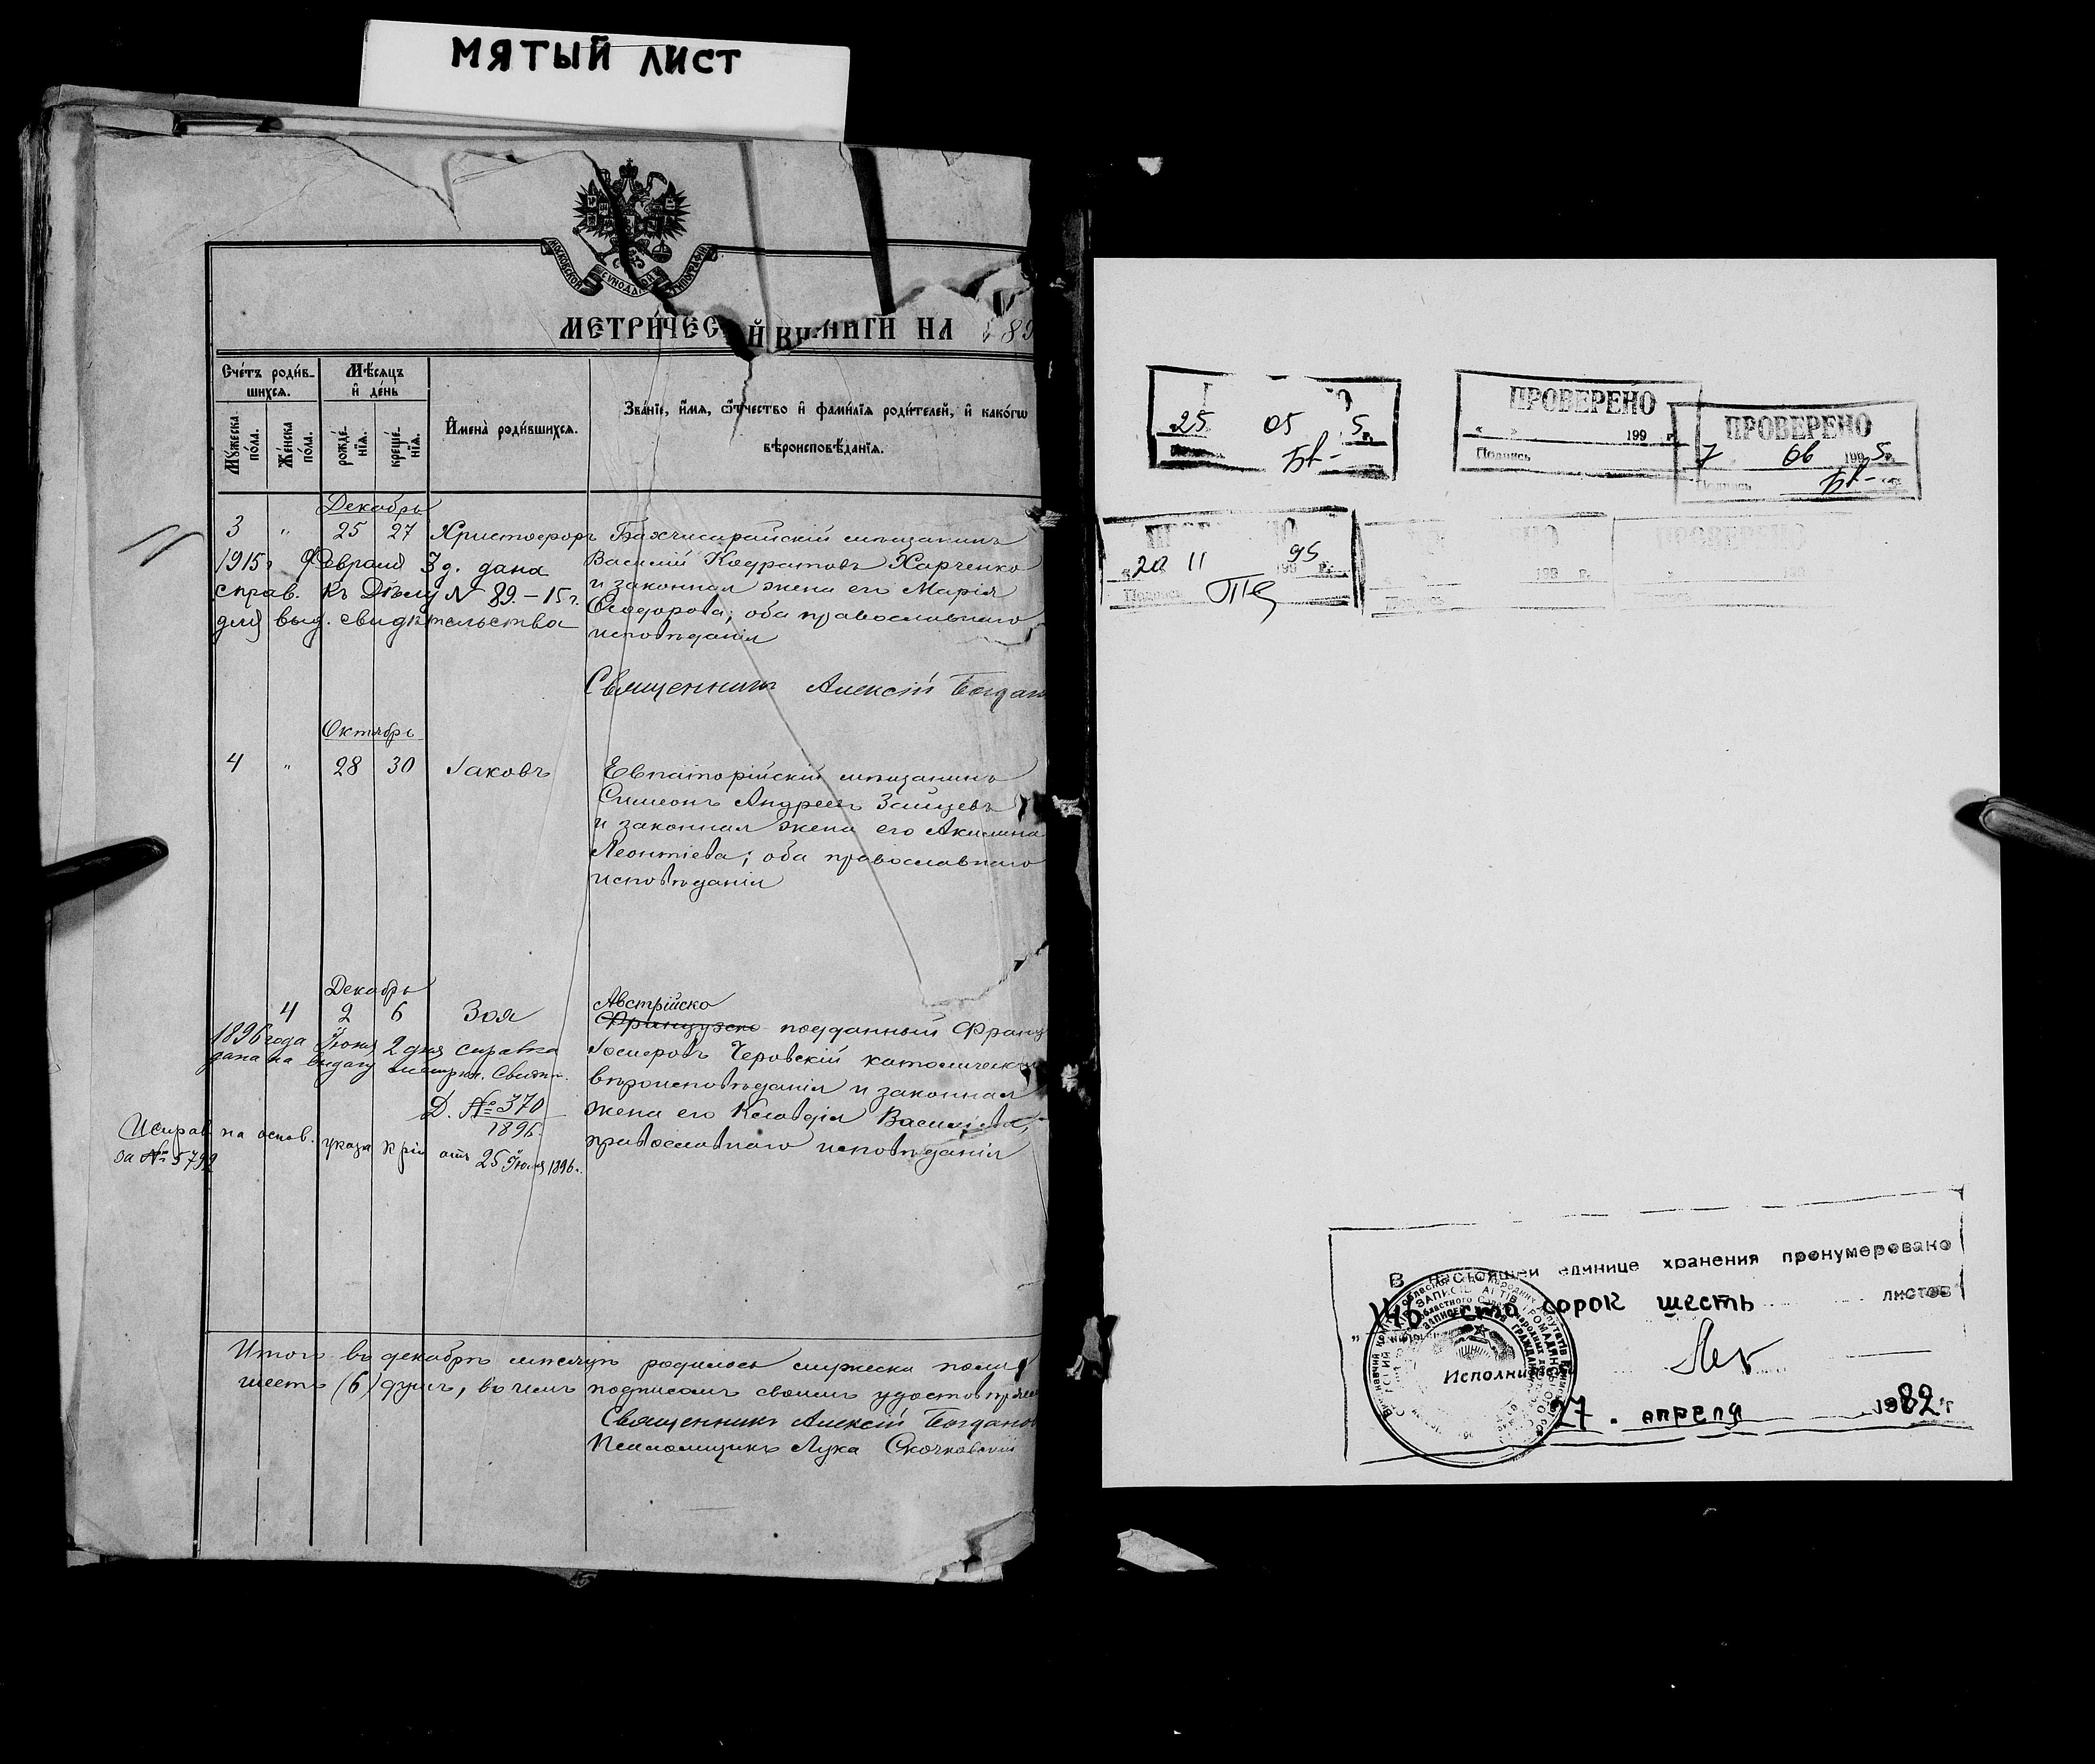 МЯТЫЙ ЛИСТ
МОСКОВСКОЙ СѴНОДАЛЬНОЙ ТИПОГРАФІИ
МЕТРИЧЕС КНИГИ НА 189
Счетъ родив-
шихся.
Мѣсяцъ
и день
Мужеска
пола.
Женска
пола.
рожде-
нія.
креще-
нія.
Имена родившихся.
Званіе, имя, отчество и фамилія родителей, и какого
вѣроисповѣданія.
Декабрь
3 " 25 27 Христофоръ Бахчисарайскій мѣщанинъ
Василій Кодратовъ Харченко
и законная жена его Марія
Ѳеодорова; оба православнаго
исповѣданія
1915 г Февраля 3 д. дана
справ. къ Дѣлу № 89.–15 г.
для выд. свидѣтельства
Священникъ Алексій Богдан
Октябрь
4 " 28 30 Іаковъ Евпаторійскій мѣщанинъ
Симеонъ Андреевъ Зайцевъ
и законная жена его Акилина
Леонтіева; оба православнаго
исповѣданія
Декабрь
4 2 6 Зоя Австрійско
Французско подданный Франц
Іосифовъ Черовскій католическ
вѣроисповѣданія и законная
жена его Клавдія Василіева,
православнаго исповѣданія
1896 года Іюня 2 дня справка
дана на выдачу метрич. Свидѣт.
Д. № 370
1896.
Исправ. на основ. указа к-ріи отъ 25 Іюля 1896 г.
за № 5792
Итого въ декабрѣ мѣсяцѣ родилось мужеска пола
шесть (6) душъ, въ чемъ подписомъ своимъ удостовѣряемъ
Священникъ Алексій Богданов
Псаломщикъ Лука Скочковскій
25 05 5 г.
Бк-
ПРОВЕРЕНО
« » 199 г.
Подпись
ПРОВЕРЕНО
7 06 1995 г.
Подпись Бк-
«20 11 95 г.
Подпись
199 г.
Подпись
ПРОВЕРЕНО
199
В настоящей единице хранения пронумеровано
146 сто сорок шесть листов
Исполнитель
27. апреля 1982 г